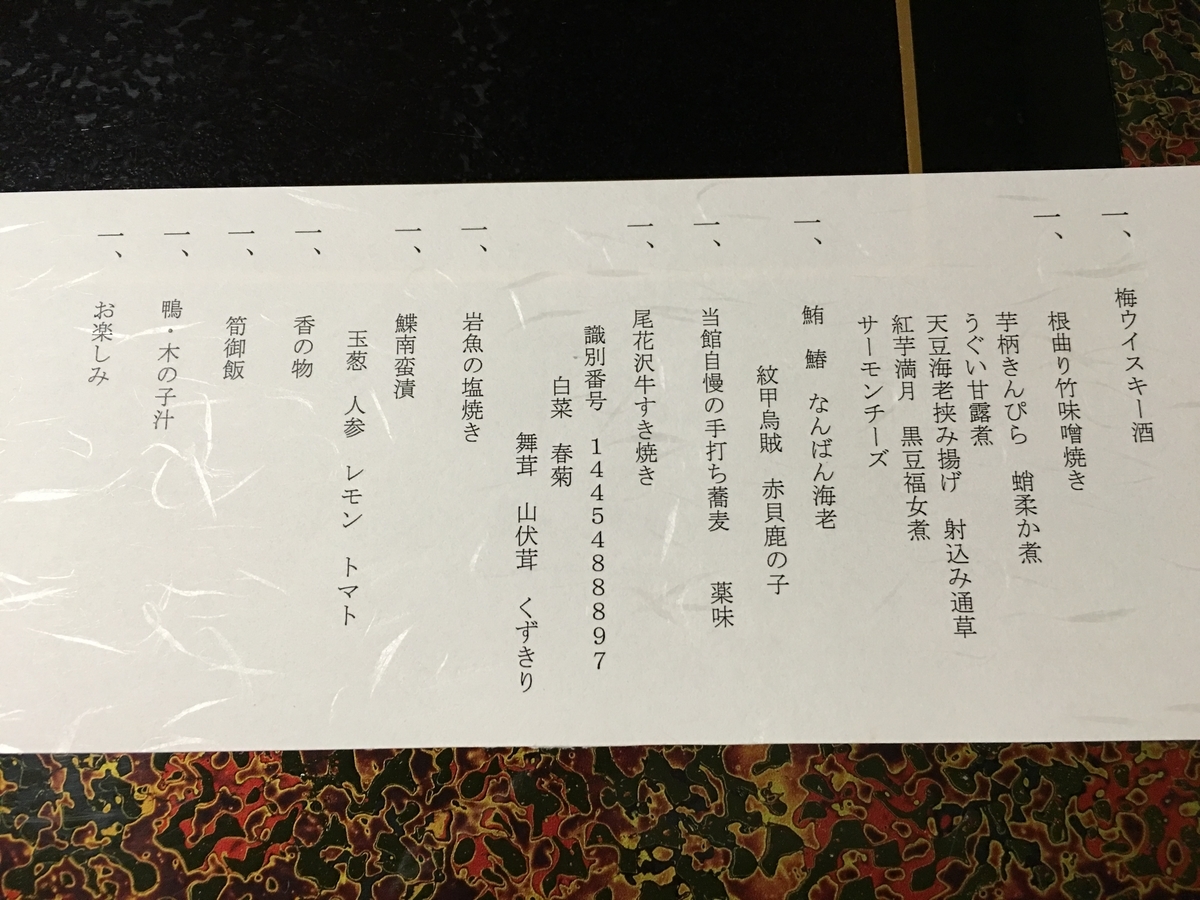 一、梅ウイスキー酒
一、根曲り竹味噌焼き
芋柄きんぴら　蛸柔か煮
うぐい甘露煮
天豆海老挟み揚げ　射込み通草
紅芋満月　黒豆福女煮
サーモンチーズ
一、鮪　鰆　なんばん海老
紋甲烏賊　赤貝鹿の子
一、当館自慢の手打ち蕎麦　薬味
一、尾花沢牛すき焼き
識別番号　１４４５４８８８９７
白菜　春菊
舞茸　山伏茸　くずきり
一、岩魚の塩焼き
一、鰈南蛮漬
玉葱　人参　レモン　トマト
一、香の物
一、筍御飯
一、鴨・木の子汁
一、お楽しみ